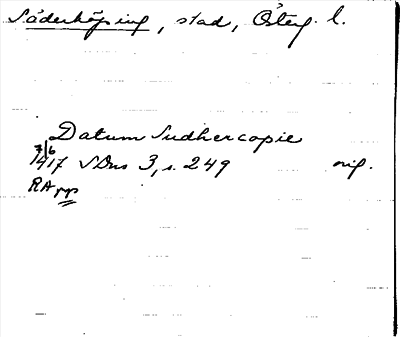 Söderköping, stad, Österg. l.
Datum Sudhercopie
7/6
1417 SDns 3, s. 249 orig.
RA pp